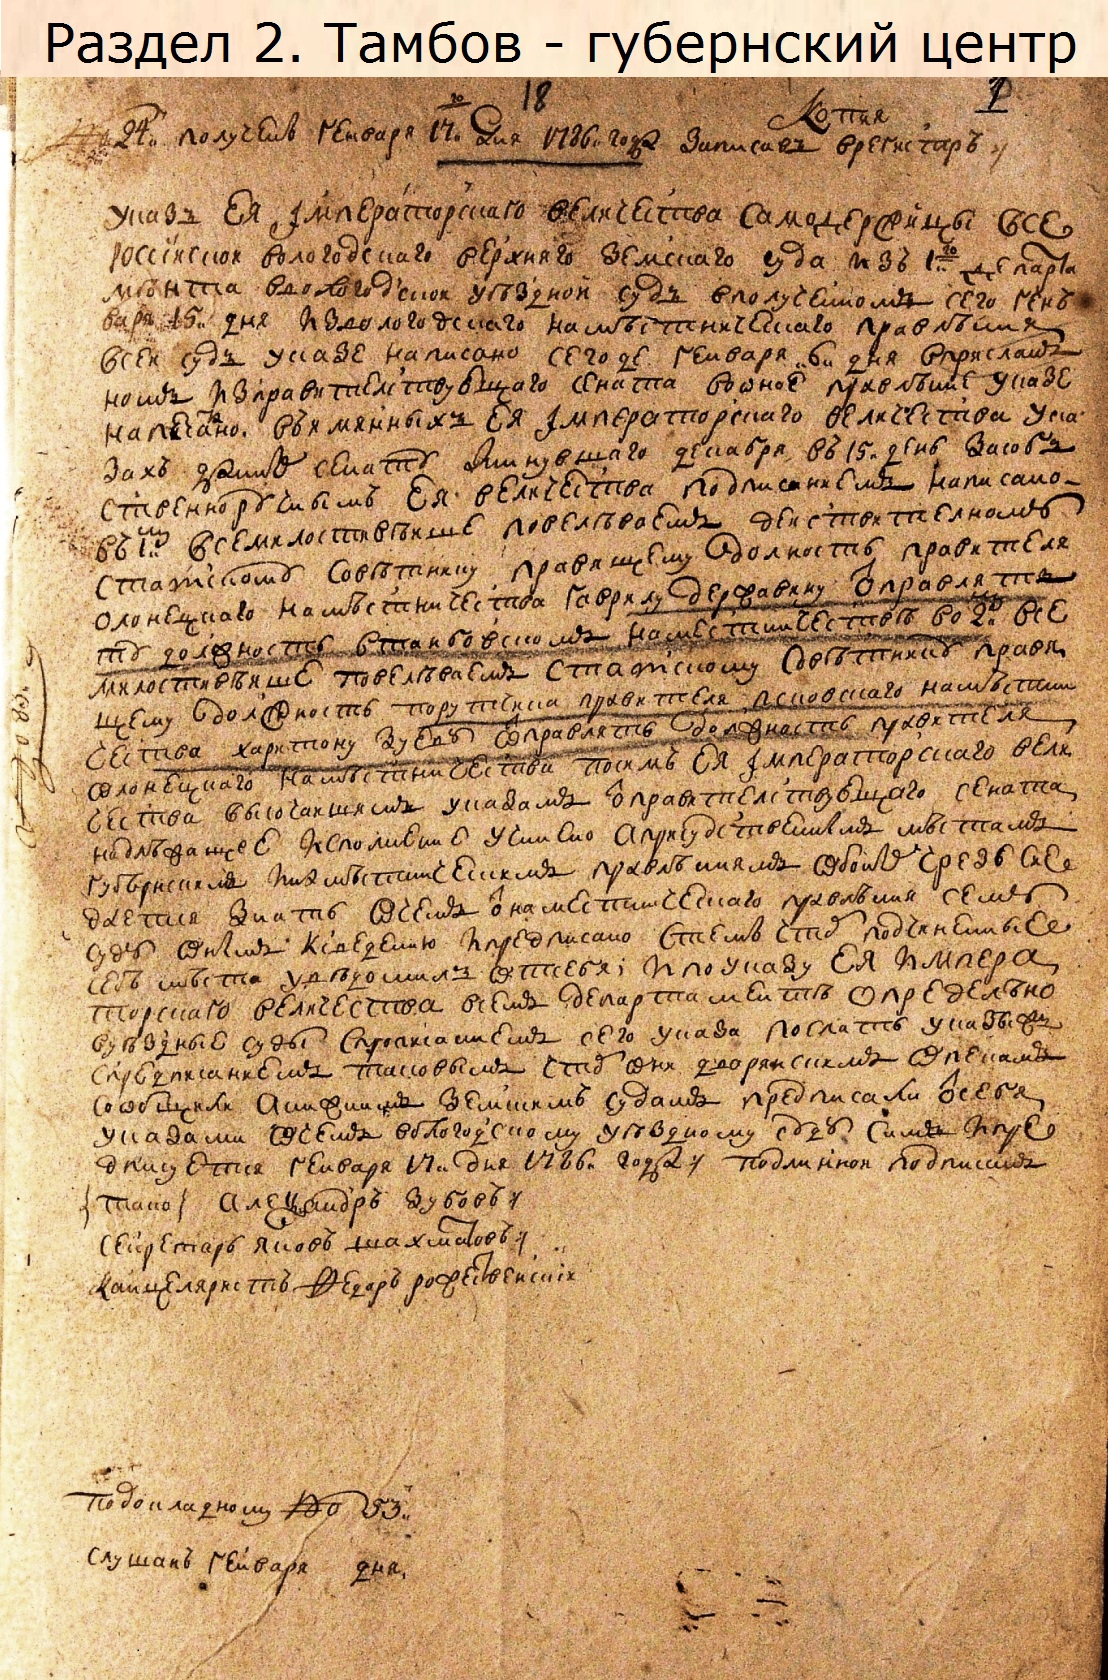 Раздел 2. Тамбов - губернский центр
18
Копия
24. получен Генваря 17го дня 1786. года Записавъ врегистаръ
Указъ Ея Императорскаго величества самодержицы все
россиской вологодскаго верхняго земскаго суда изъ 1го департа
мента вологодской уѣздной судъ вполученномъ сего ген
варя 15. дня извологодскаго намѣстническаго правлѣния
всей судъ указе написано сегоде Генваря 6. дня вприслан
номъ изправителствующаго сената воное правлѣние указе
написано. въимянныхъ Ея Императорскаго величества ука
захъ данныхъ сенату минувшаго декабря въ 15. день засоб
ственноручнымъ Ея величества подписаниемъ написано
въ 1мъ всемилостивѣише повелѣваемъ действителному
статскому совѣтнику правящему должность правителя
олонецкаго намѣстничества Гаврилу державину отправлят
ту должность втанбовскомъ намѣстничествѣ во 2мъ все
милостивѣише повелѣваемъ статскому совѣтнику правя
щему должность порутчика правителя псковскаго намѣстни
чества харитону Зубову отправлять должность правителя
олонецкаго намѣстничества посимъ Ея Императорскаго вели
чества высочаишимъ указамъ оправителствующаго сената
надлежащее исполнение учинено априсудственнымъ мѣстамъ
губернскимъ инамѣстническимъ правлѣниямъ чрезъ сие
дается знать очемъ отнамѣстническаго правлѣния семъ
судъ кведению ипредписано стемъ чтоб подчиненные
себѣ мѣста увѣдомилъ отсебя; ипоуказу Ея импера
торскаго величества всемъ департаментъ определено
вуѣздные суды спрописаниемъ сего указа послать указы
спредписаниемъ таковымъ чтоб они дворянскимъ опекамъ
сообщили анижнимъ земскимъ судамъ предписали отсебя
указами очемъ вологодскому уѣздному суду симъ ипре
дписуется генваря 17. дня 1786. года подлинной подписали
тако Александръ Зубовъ
секретарь яковъ шахматовъ
канцеляристъ Федоръ рожественскій
подокладному No 53.
слушанъ Генваря дня.